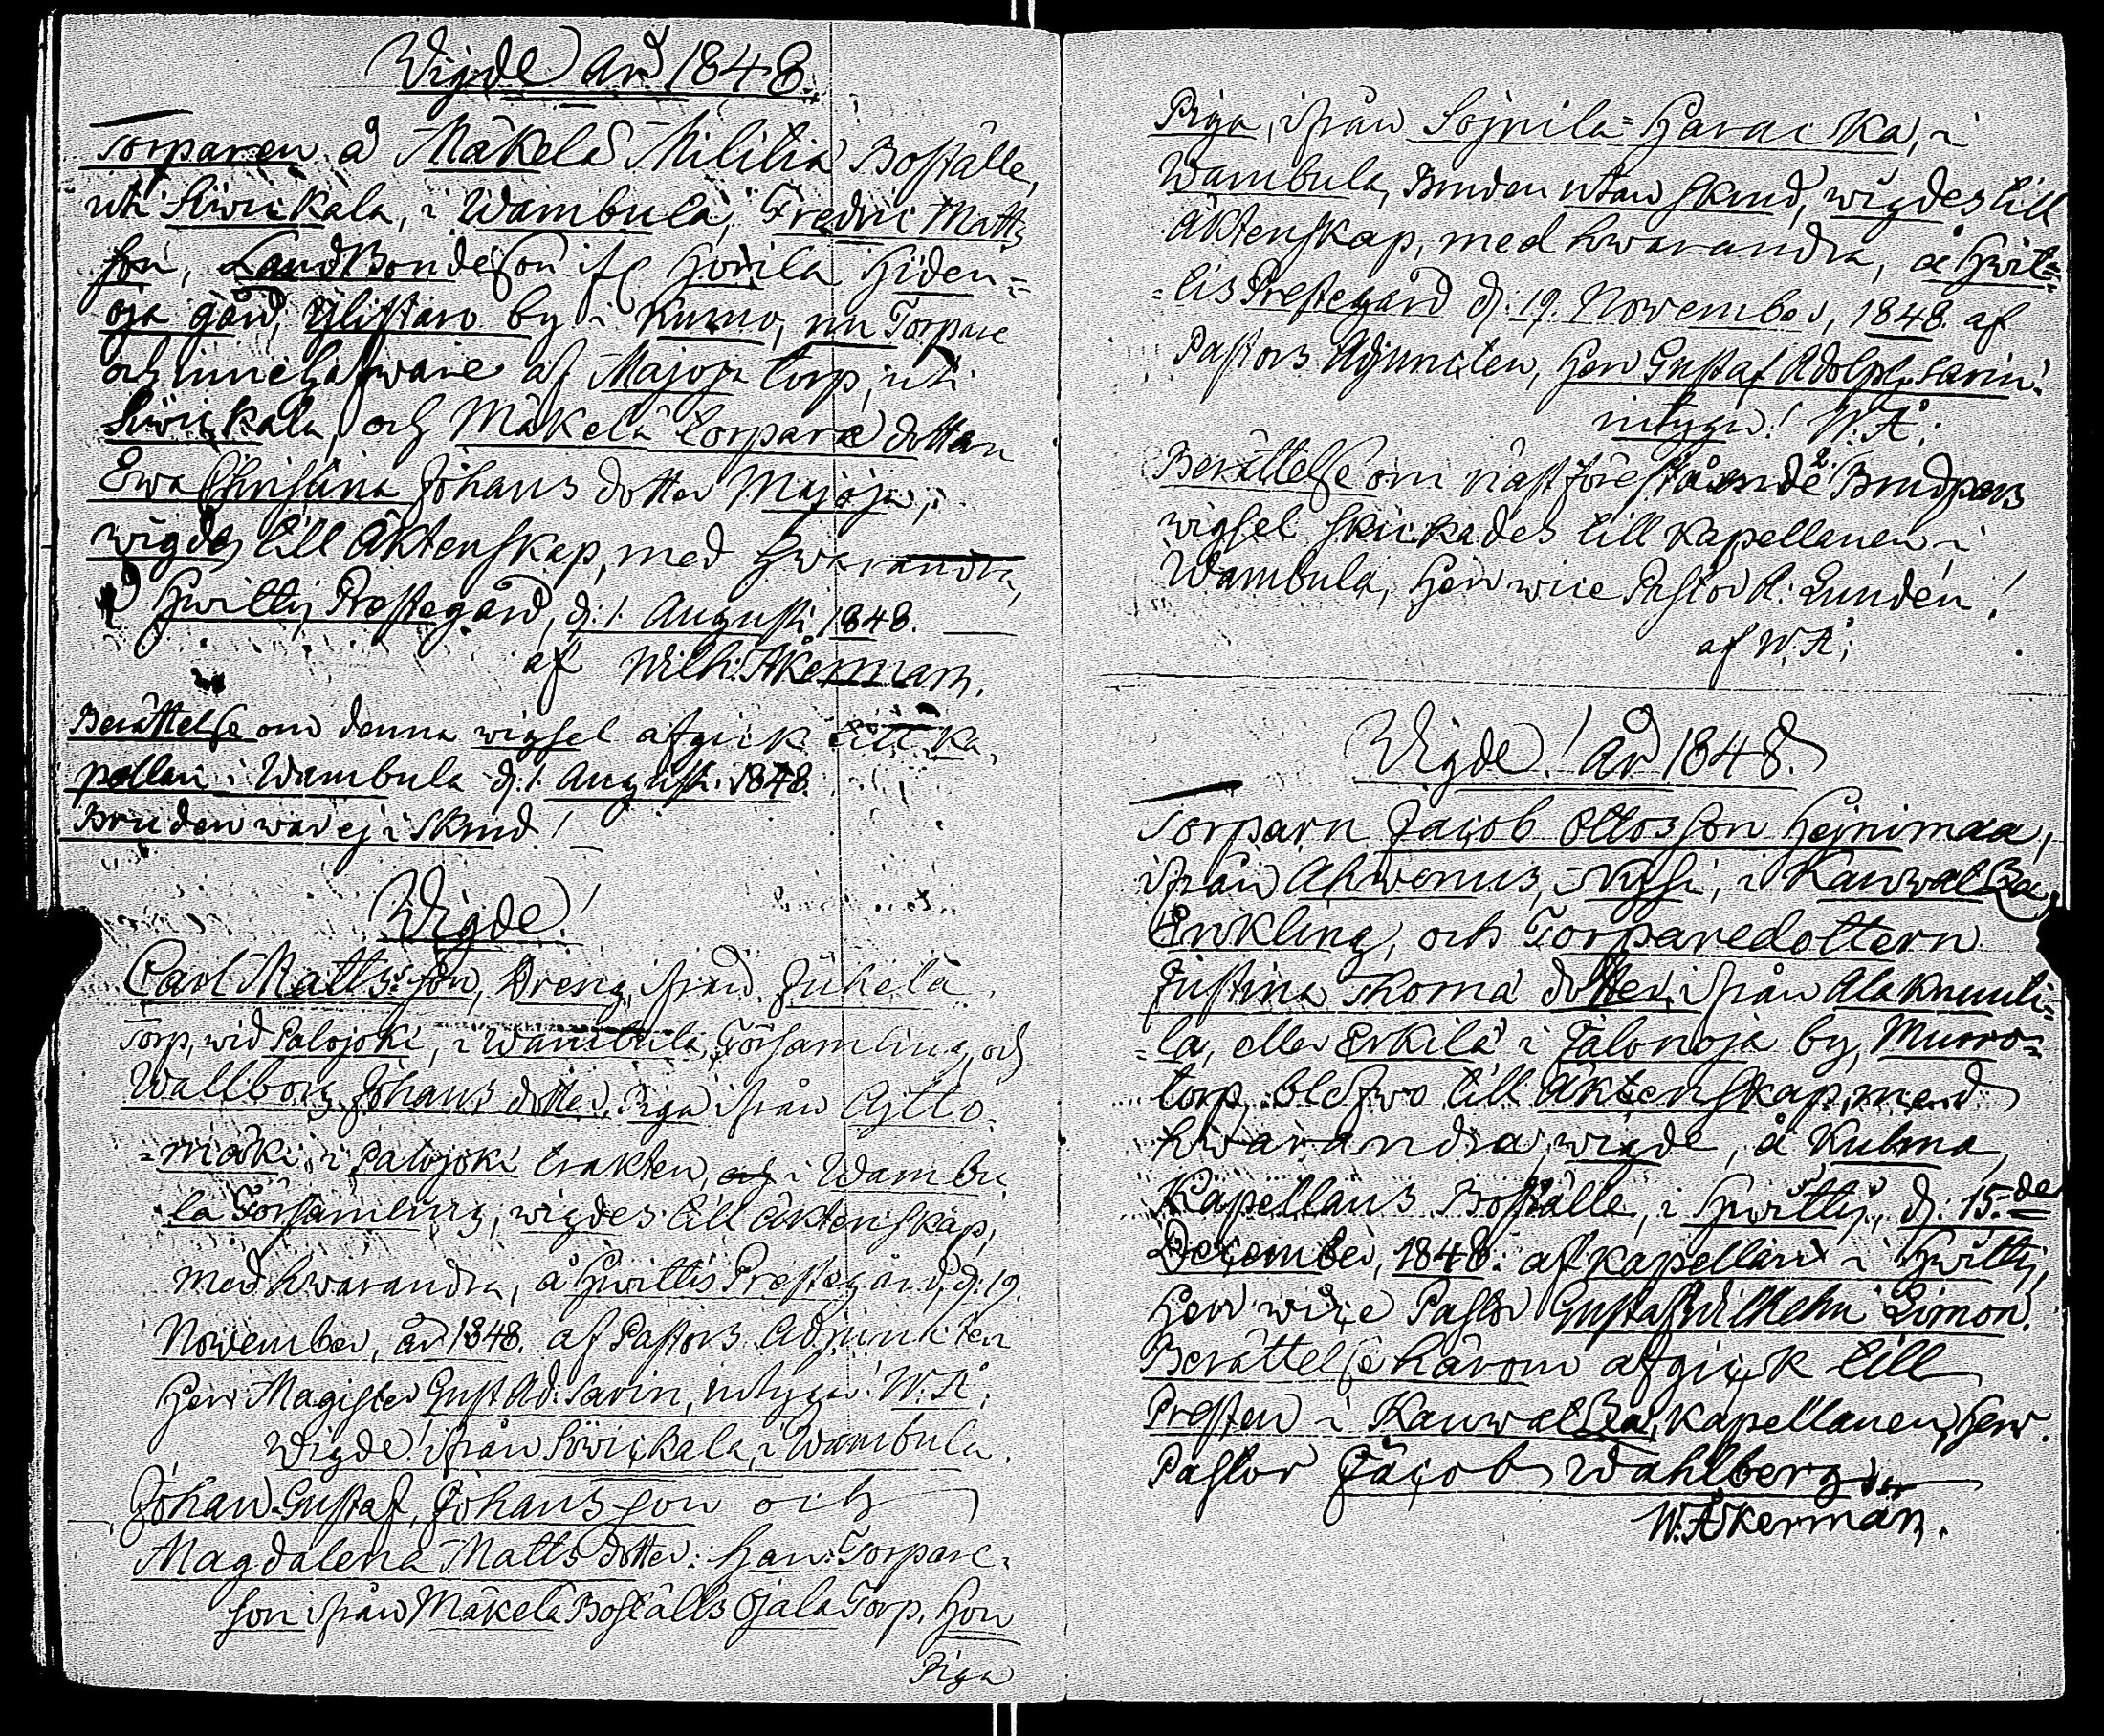 Wigde år 1848.
Torparen å Mäkelä Militiæ Boställe,
uti Siwickala, i Wambula, Fredric Matts
son, LandBondeson if Horila Hiden-
oja gård, Ylistaro by i Kumo, nu Torpare
och innehafware af Majoja torp, uti
Siwickala, och Mäkelä torpare dottren
Ewa Christina Johans dotter Majoja,
wigdes till Äktenskap, med hwarandra,
å Hwittis Prestegård, d: 1. Augusti 1848.
af Wilh: Åkerman.
Berättelse om denna wigsel afgick till Ka-
pellan i Wambula d: 1. Augusti 1848.
Bruden war ej i Skrud!
Wigde!
Carl Matts son, Dreng, ifrån Juhela
Torp, wid Palojoki, i Wambula Församling, och
Wallborg Johans dotter, Piga ifrån Cytto-
=mäki, i Palojoki trakten, i Wambu
la Församling, wigdes till äktenskap,
med hwarandra, å Hwittis Prestegård, d: 19.
November, år 1848. af Pastors Adjunkten
Herr Magister Gust. Ad: Savin, intygar! W. Å.
Wigde! ifrån Siwickala, i Wambula.
Johan Gustaf, Johansson och
Magdalena Matts dotter: Han: Torpare-
son ifrån Mäkelä Boställs Ojala Torp, Hon
Piga
Piga, ifrån Sojnila=Haracka, i
Wambula, Bruden utan skrud, wigdes till
Äktenskap, med hwarandra, å Hwit=
=tis Prestegård d: 19. November, 1848. af
Pastors Adjuncten, Herr Gustaf Adolph Savin!
intygar! W. Å.
Berättelse om nästföreståënde 2 Brudpars
wigsel skickades till Kapellanen i
Wambula, Herr wice Pastor A. Lundén!
af W. Å;
Wigde! år 1848.
Torparn Jacob Ottosson Hejnimaa,
ifrån Ahwenus, i Kauwatsa,
Enkling, och Torparedottern
Justina Thomæ dotter, ifrån Alaknuuti=
=la, eller Erkilä i Jalonoja by, Murro=
torp, blefwo till Äktenskap, med
hwarandra, wigde, å Kulma,
Kapellans Boställe, i Hwittis, d: 15:de
December, 1848: af kapellan i Hwittis,
Herr wice Pastor Gustaf Wilhelm Limon.
Berättelse härom afgick till
Presten i Kauwatsa, kapellanen, Herr
Pastor Jacob Wahlberg
W. Åkerman.